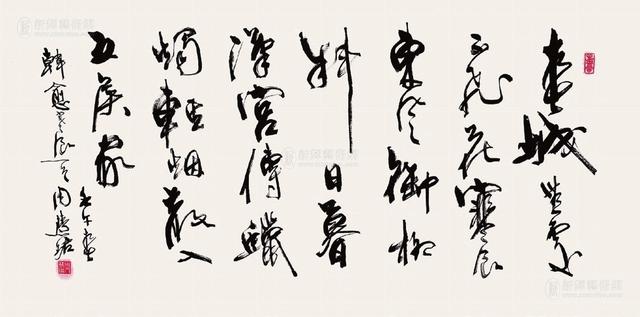 春城無處
不飛花寒食
東風御柳
斜日暮
漢宮傳蠟
燭輕烟散入
五侯家
壬午春
韓愈寒食一首周慧珺